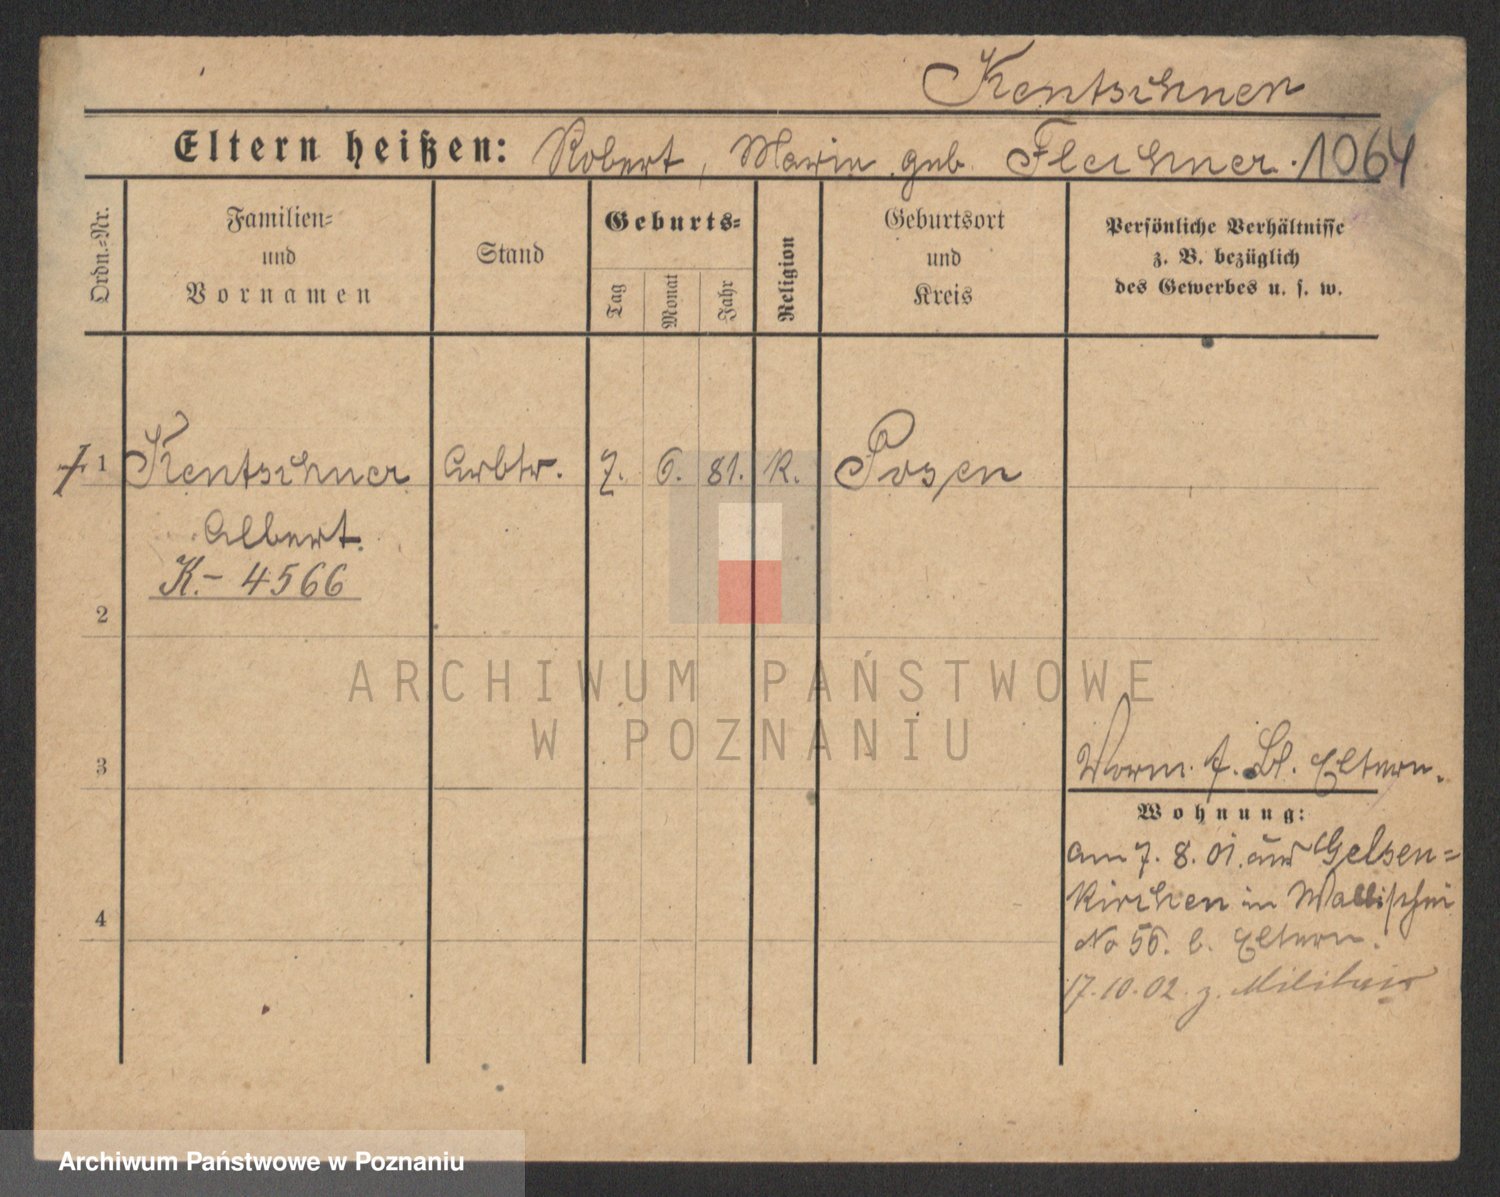 Kentschner
Eltern heißen: Robert, Marie geb. Fleischner. 1064
Ordn.-Nr.
Familien-
und
Vornamen
Stand
Geburts-
Tag
Monat
Jahr
Religion
Geburtsort
und
Kreis
Persönliche Verhältnisse
z. B. bezüglich
des Gewerbes u. s. w.
1 Kentschner Arbtr. 7. 6. 81. K. Posen
Albert.
K.- 4566
2
3
4
ARCHIWUM PAŃSTWOWE
W POZNANIU
Eltern.
Wohnung:
am 7. 8. 01. aus Gelsen-
kirchen in Wallischei
No 55. b. Eltern.
17.10.02. z. Militair
Archiwum Państwowe w Poznaniu